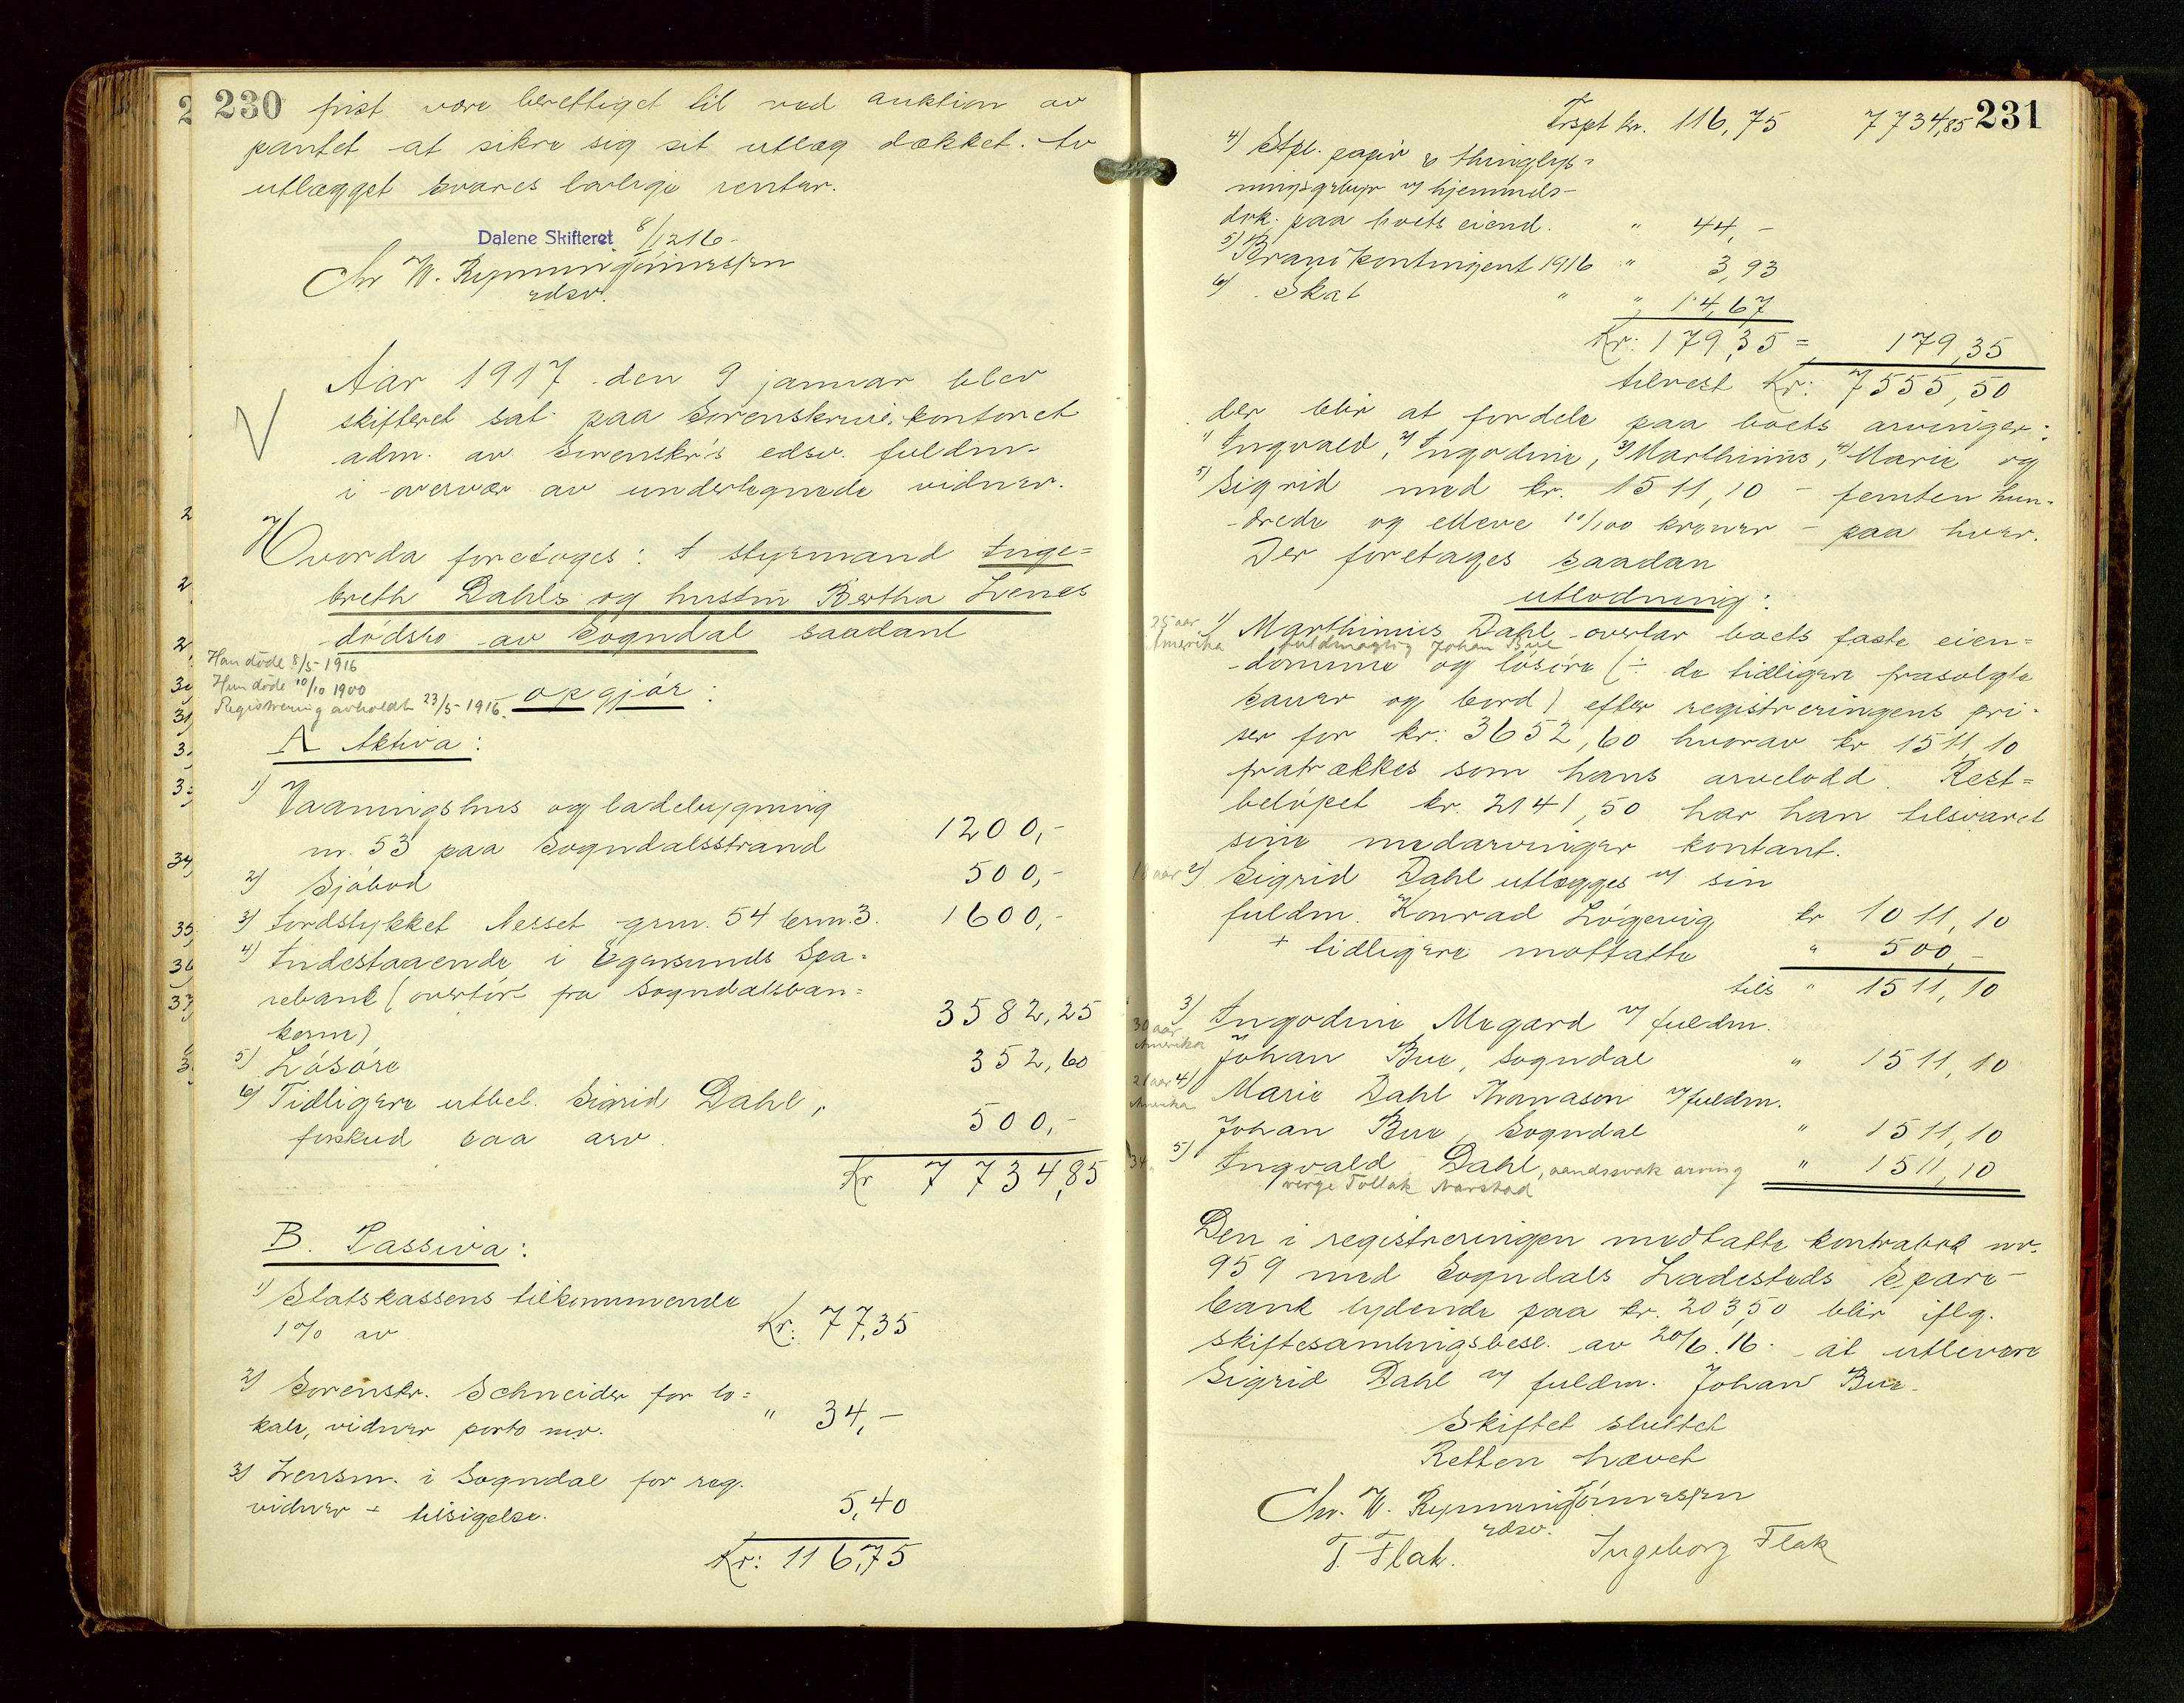 230
frist være berettiget til ved auktion av
pantet at sikre sig sit utlæg dækket. Av
utlægget svares lovlige renter.
Dalene Skifteret 8/12 16
Chr W. Rynning Tönnessen
edsv.
V
Aar 1917 den 9 januar blev
skifteret sat paa Sorenskriv. kontoret
adm. av Sorenskr's edsv. fuldm-
i overvær av undertegnede vidner.
Hvorda foretoges: I styrmand Inge=
breth Dahls og hustru Bertha Lenes
dödsbo av Sogndal saadant
Han döde 8/5-1916
Hun döde 10/10 1900
Registrering avholdt 23/5-1916.
opgjör:
A Aktiva:
1) Vaaningshus og ladebygning
nr. 53 paa Sogndalsstrand 1200,-
2) Sjöbod 500,-
3) Jordstykket Nesset grn. 54 brn. 3. 1600,-
4) Indestaaende i Egersunds Spa=
rebank (overfört fra Sogndalsban=
kerne) 3582,25
5) Lösöre 352,60
6) Tidligere utbet. Sigrid Dahl,
forskud paa arv. 500,-
Kr 7734,85
B. Passiva:
1) Statskassens tilkommende
1% av Kr: 77,35
2) Sorenskr. Schneider for lo=
kale, vidner porto mv. " 34,-
3) Lensm. i Sogndal for reg.
vidner + tilsigelse. 5,40
Kr: 116,75
231
Trspt kr. 116,75 7734,85
4) Stpl. papir & thinglys=
ningsgebyr v/ hjemmels-
dok. paa boets eiend. " 44,-
5) Brandkontingent 1916 " 3,93
6) Skat " " 14,67
Kr: 179,35 = 179,35
tilrest Kr: 7555,50
der blir at fordele paa boets arvinger:
1) Ingvald, 2) Ingodine, 3) Marthinius, 4) Marie og
5) Sigrid med kr. 1511,10 - femten hun-
drede og elleve 10/100 kroner - paa hver.
Der foretages saadan
utlodning:
25 aar
Amerika
1) Marthinius Dahl overtar boets faste eien=
fuldmægtig Johan Bue
domme og lösöre (÷ de tidligere frasolgte
sauer og bord) efter registreringens pri-
ser for kr: 3652,60 hvorav kr 1511,10
fratrækkes som hans arvelodd. Rest=
belöpet kr. 2141,50 har han tilsvaret
sine medarvinger kontant.
18 aar 2) Sigrid Dahl utlægges v/ sin
fuldm. Konrad Lögevig kr 1011,10
+ tidligere mottatte " 500,-
tils " 1511,10
30 aar
Amerika
3) Ingodine Megard v/ fuldm.
Johan Bue, Sogndal " 1511,10
21 aar
Amerika
4) Marie Dahl Thomason v/ fuldm.
Johan Bue, Sogndal " 1511,10
34 "
5) Ingvald Dahl, aandssvak arving " 1511,10
verge Tollak Narstad
Den i registreringen medtatte kontrabok nr.
959 med Sogndals Ladesteds Spare-
bank lydende paa kr. 203,50 blir iflg.
skiftesamlingsbesl. av 20/6.16. at utlevere
Sigrid Dahl v/ fuldm. Johan Bue.
Skiftet sluttet
Retten hævet
Chr. W. Rynning Tönnessen
edsv.
T. Flak. Ingeborg Flak